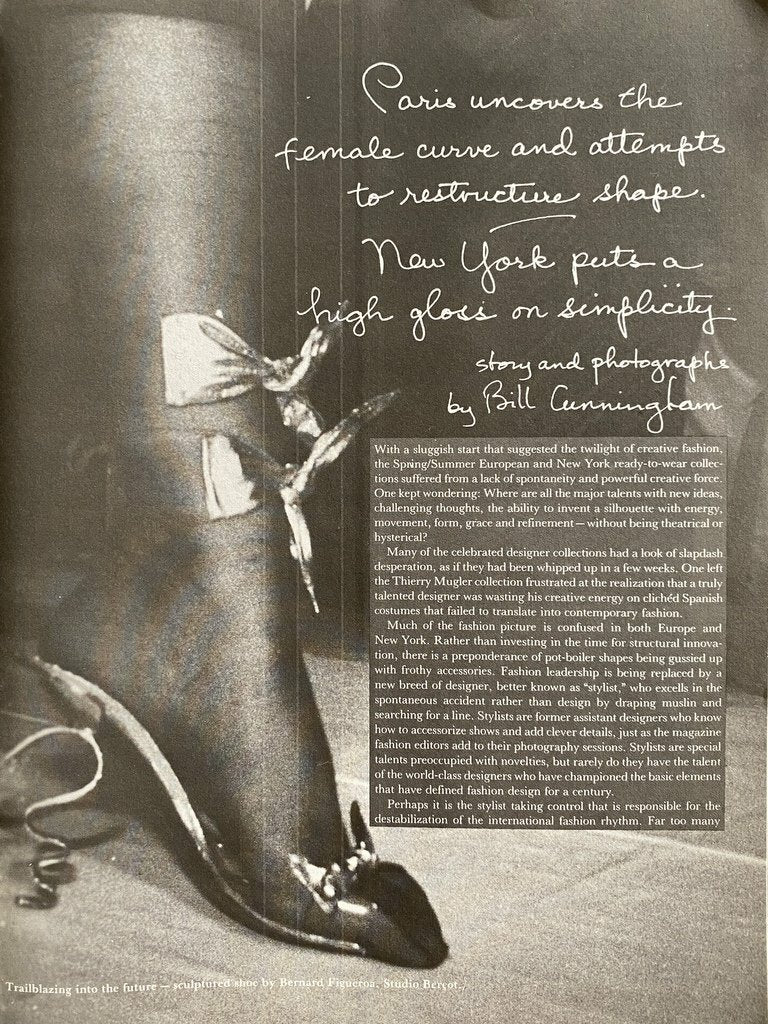 Paris uncovers the
female curve and attempts
to restructure shape.
New York puts a
high gloss on simplicity.
story and photographs
by Bill Cunningham
With a sluggish start that suggested the twilight of creative fashion,
the Spring/Summer European and New York ready-to-wear collec-
tions suffered from a lack of spontaneity and powerful creative force.
One kept wondering: Where are all the major talents with new ideas,
challenging thoughts, the ability to invent a silhouette with energy,
movement, form, grace and refinement—without being theatrical or
hysterical?
Many of the celebrated designer collections had a look of slapdash
desperation, as if they had been whipped up in a few weeks. One left
the Thierry Mugler collection frustrated at the realization that a truly
talented designer was wasting his creative energy on clichéd Spanish
costumes that failed to translate into contemporary fashion.
Much of the fashion picture is confused in both Europe and
New York. Rather than investing in the time for structural innova-
tion, there is a preponderance of pot-boiler shapes being gussied up
with frothy accessories. Fashion leadership is being replaced by a
new breed of designer, better known as “stylist,” who excells in the
spontaneous accident rather than design by draping muslin and
searching for a line. Stylists are former assistant designers who know
how to accessorize shows and add clever details, just as the magazine
fashion editors add to their photography sessions. Stylists are special
talents preoccupied with novelties, but rarely do they have the talent
of the world-class designers who have championed the basic elements
that have defined fashion design for a century.
Perhaps it is the stylist taking control that is responsible for the
destabilization of the international fashion rhythm. Far too many
Trailblazing into the future — sculptured shoe by Bernard Figueroa, Studio Berçot.